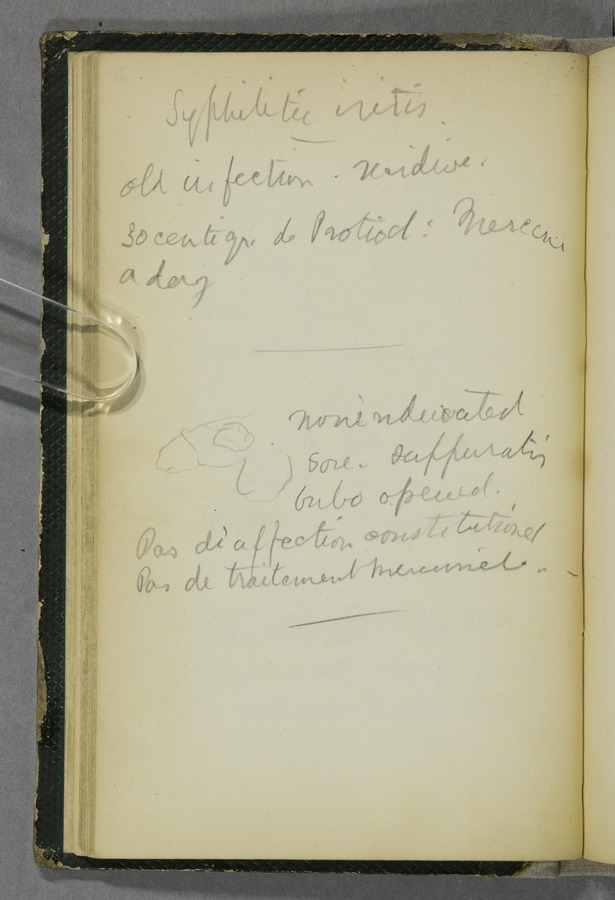 Syphilitic iritis.
old infection. recidive.
30 centigr. de Protiod: Mercure
a day
non indurated
sore. suppurating
bubo opened.
Pas d'affection constitutionel
Pas de traitement mercuriel.